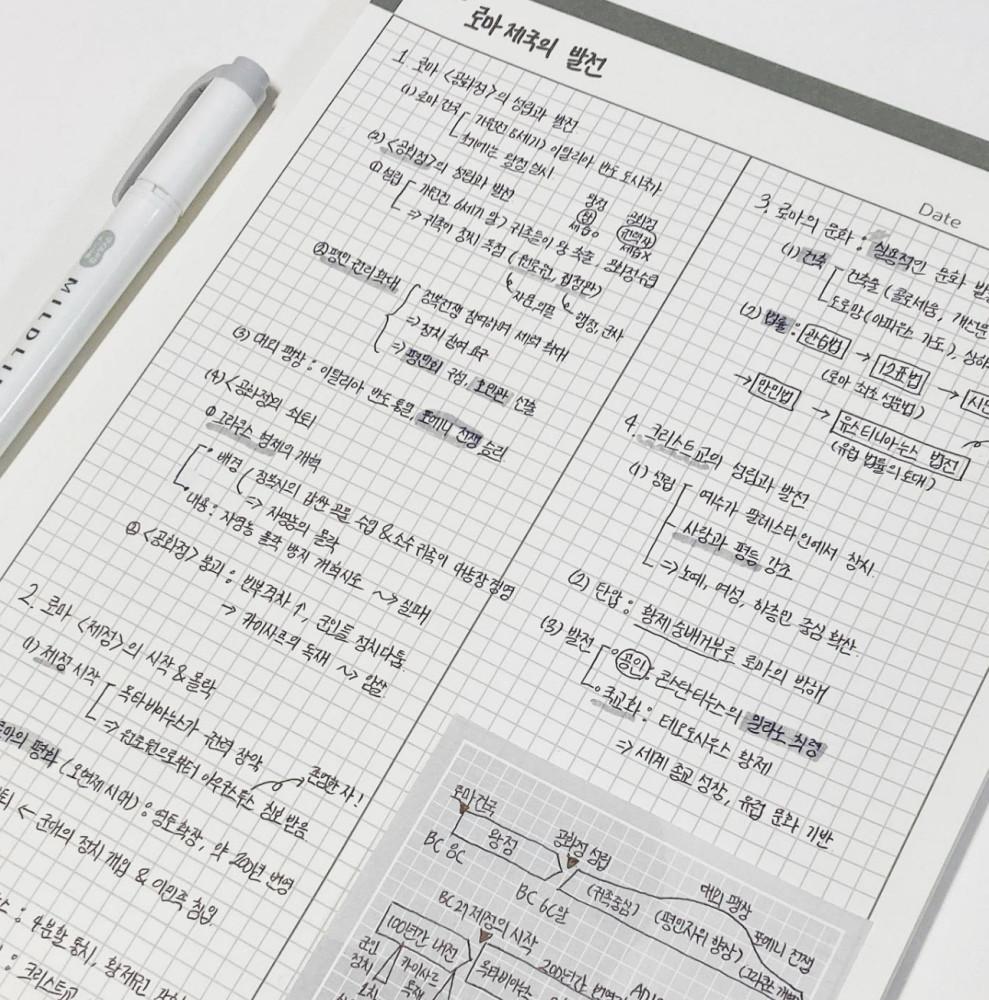 로마 제국의 발전
Date
1. 로마 <공화정>의 성립과 발전
(1) 로마 건국
기원전 8세기) 이탈리아 반도 도시국가
초기에는 왕정 실시
(2) <공화정>의 성립과 발전
① 성립
기원전 6세기 말) 귀족들이 왕 축출, 공화정 수립
⇒ 귀족이 정치 독점 (원로원, 집정관)
왕정 공화정
왕 권력자
세습o 세습X
자문, 의결
행정, 군사
② 평민 권리 확대
정복전쟁 참여하며 세력 확대
⇒ 정치 참여 요구
⇒ 평민회 구성, 호민관 선출
(3) 대외 팽창 : 이탈리아 반도 통일, 포에니 전쟁 승리
(4) <공화정>의 쇠퇴
① 그라쿠스 형제의 개혁
• 배경 ( 정복지의 값싼 곡물 수입 & 소수 귀족이 대농장 경영
⇒ 자영농의 몰락
• 내용 : 자영농 몰락 방지 개혁시도 ~> 실패
② <공화정> 붕괴 : 빈부격차 ↑, 군인들 정치다툼
→ 카이사르의 독재 ~> 암살
2. 로마 <제정>의 시작 & 몰락
(1) 제정 시작
옥타비아누스가 권력 장악
⇒ 원로원으로부터 아우구스투스 칭호 받음
존엄한 자!
로마의 평화 (오현제 시대) : 영토 확장, 약 200년 번영
← 군대의 정치 개입 & 이민족 침입
: 4분할 통치, 황제권
: 크리스트교
3. 로마의 문화 : 실용적인 문화
(1) 건축
건축물 (콜로세움, 개선문
도로망 (아피우스 가도),
(2) 법률 : 관습법 → 12표법 →
(로마 최초 성문법)
→ 만민법 → 유스티니아누스 법전
(유럽 법률의 토대)
4. 크리스트교의 성립과 발전
(1) 성립
예수가 팔레스타인에서 창시
사랑과 평등 강조
⇒ 노예, 여성, 하층민 중심 확산
(2) 탄압 : 황제 숭배거부로 로마의 박해
(3) 발전
◦ 공인 : 콘스탄티누스의 밀라노 칙령
◦ 국교화 : 테오도시우스 황제
⇒ 세계 종교 성장, 유럽 문화 기반
로마건국
왕정
BC 8C
공화정 성립
BC 6C말
(귀족중심)
(평민지위 향상)
대외 팽창
포에니 전쟁
BC 27 제정의 시작
100년간 내전
군인
정치
카이사르
독재
옥타비아누스
200년간
MILDLI